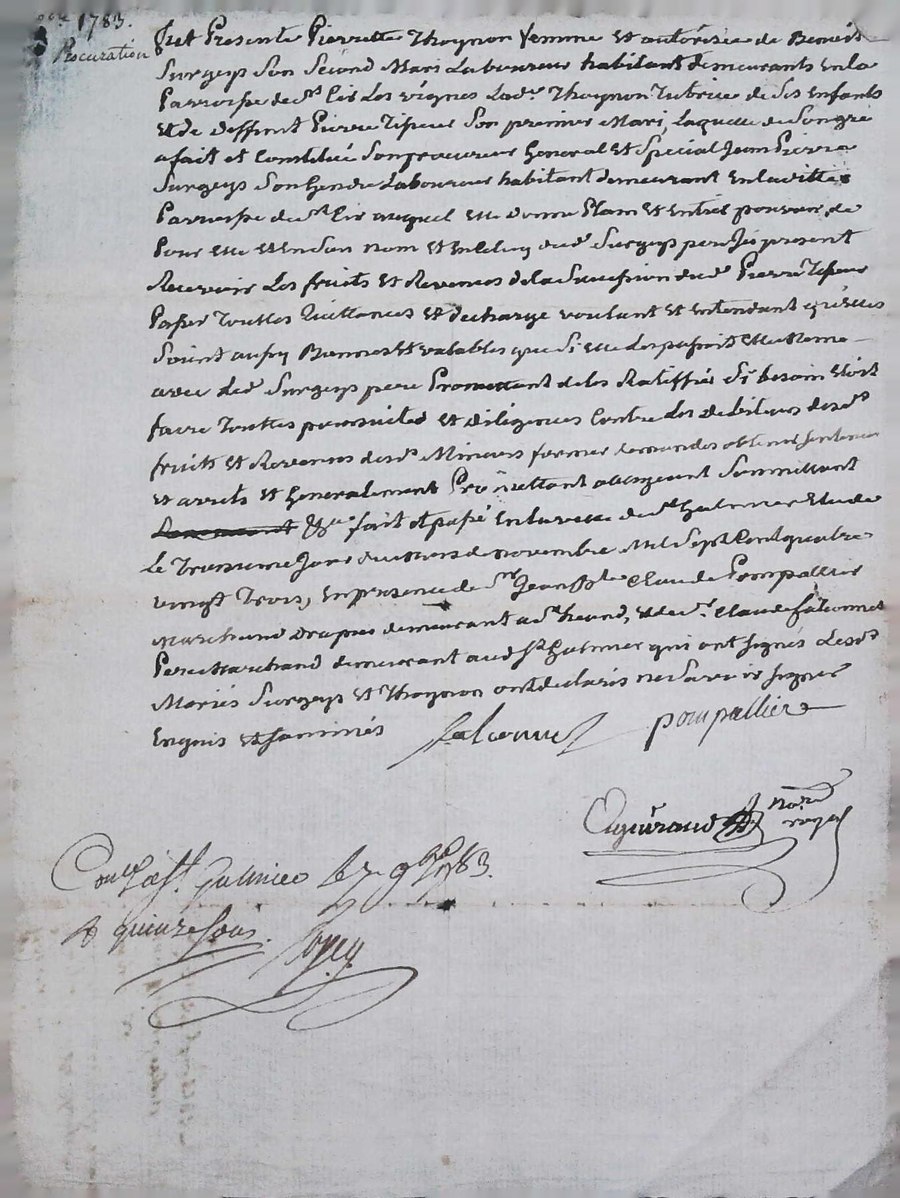 9bre 1783.
Procuration
Fut Presente Pierrette Thoynon femme Et autorisée de Benoit
Surgeys Son Second Mari Laboureur habitant demeurants En la
Parroisse de St Cir Les vignes Lade Thoynon Tutrice de Ses Enfants
Et de deffunt Pierre Tisseur Son premier Mari, laquelle de Son gré
a fait et Constitué Son procureur General Et Special Jean Pierre
Surgeys Son Gendre Laboureur habitant demeurant En laditte
Parroisse de St Cir auquel Elle donne Plain Et Entier pouvoir, de
Pour Elle Et En Son nom Et En Celuy dud Surgeys pere Icy present
Recevoir Les fruits Et Revenus de la Succession dud Pierre Tisseur
Passer Touttes Quittances Et decharge voulant Et Entendant qu'elles
Soient aussy Bonnes Et valables que Si Elle Les passoit Elle Meme
avec Led Surgeys pere Promettant de les Ratiffier Si besoin Etoit
faire Touttes poursuites Et diligences Contre Les debiteurs desds
fruits Et Revenus desds Mineurs former demandes obtenir Sentences
Et arrets Et Generalement Promettant obligeant Soummettant
fait Et passé En la ville de St Galmier Etude
Le Troisieme Jour du Mois de novembre Mil Sept Cent quatre
vingt Trois, En presence de Sr Jean Claude Pompallier
Marchand Drapier demeurant et de Sr Claude falconnet
Pere Marchand demeurant aud St Galmier qui ont Signés Lesds
Mariés Surgeys Et Thoynon ont declarés ne Savoir Signer
Enquis Et Sommés
falconnet pompallier
Eyguiraud nore royal
Conlé à St Galmier le 7 9bre 1783.
R quinze Sous.